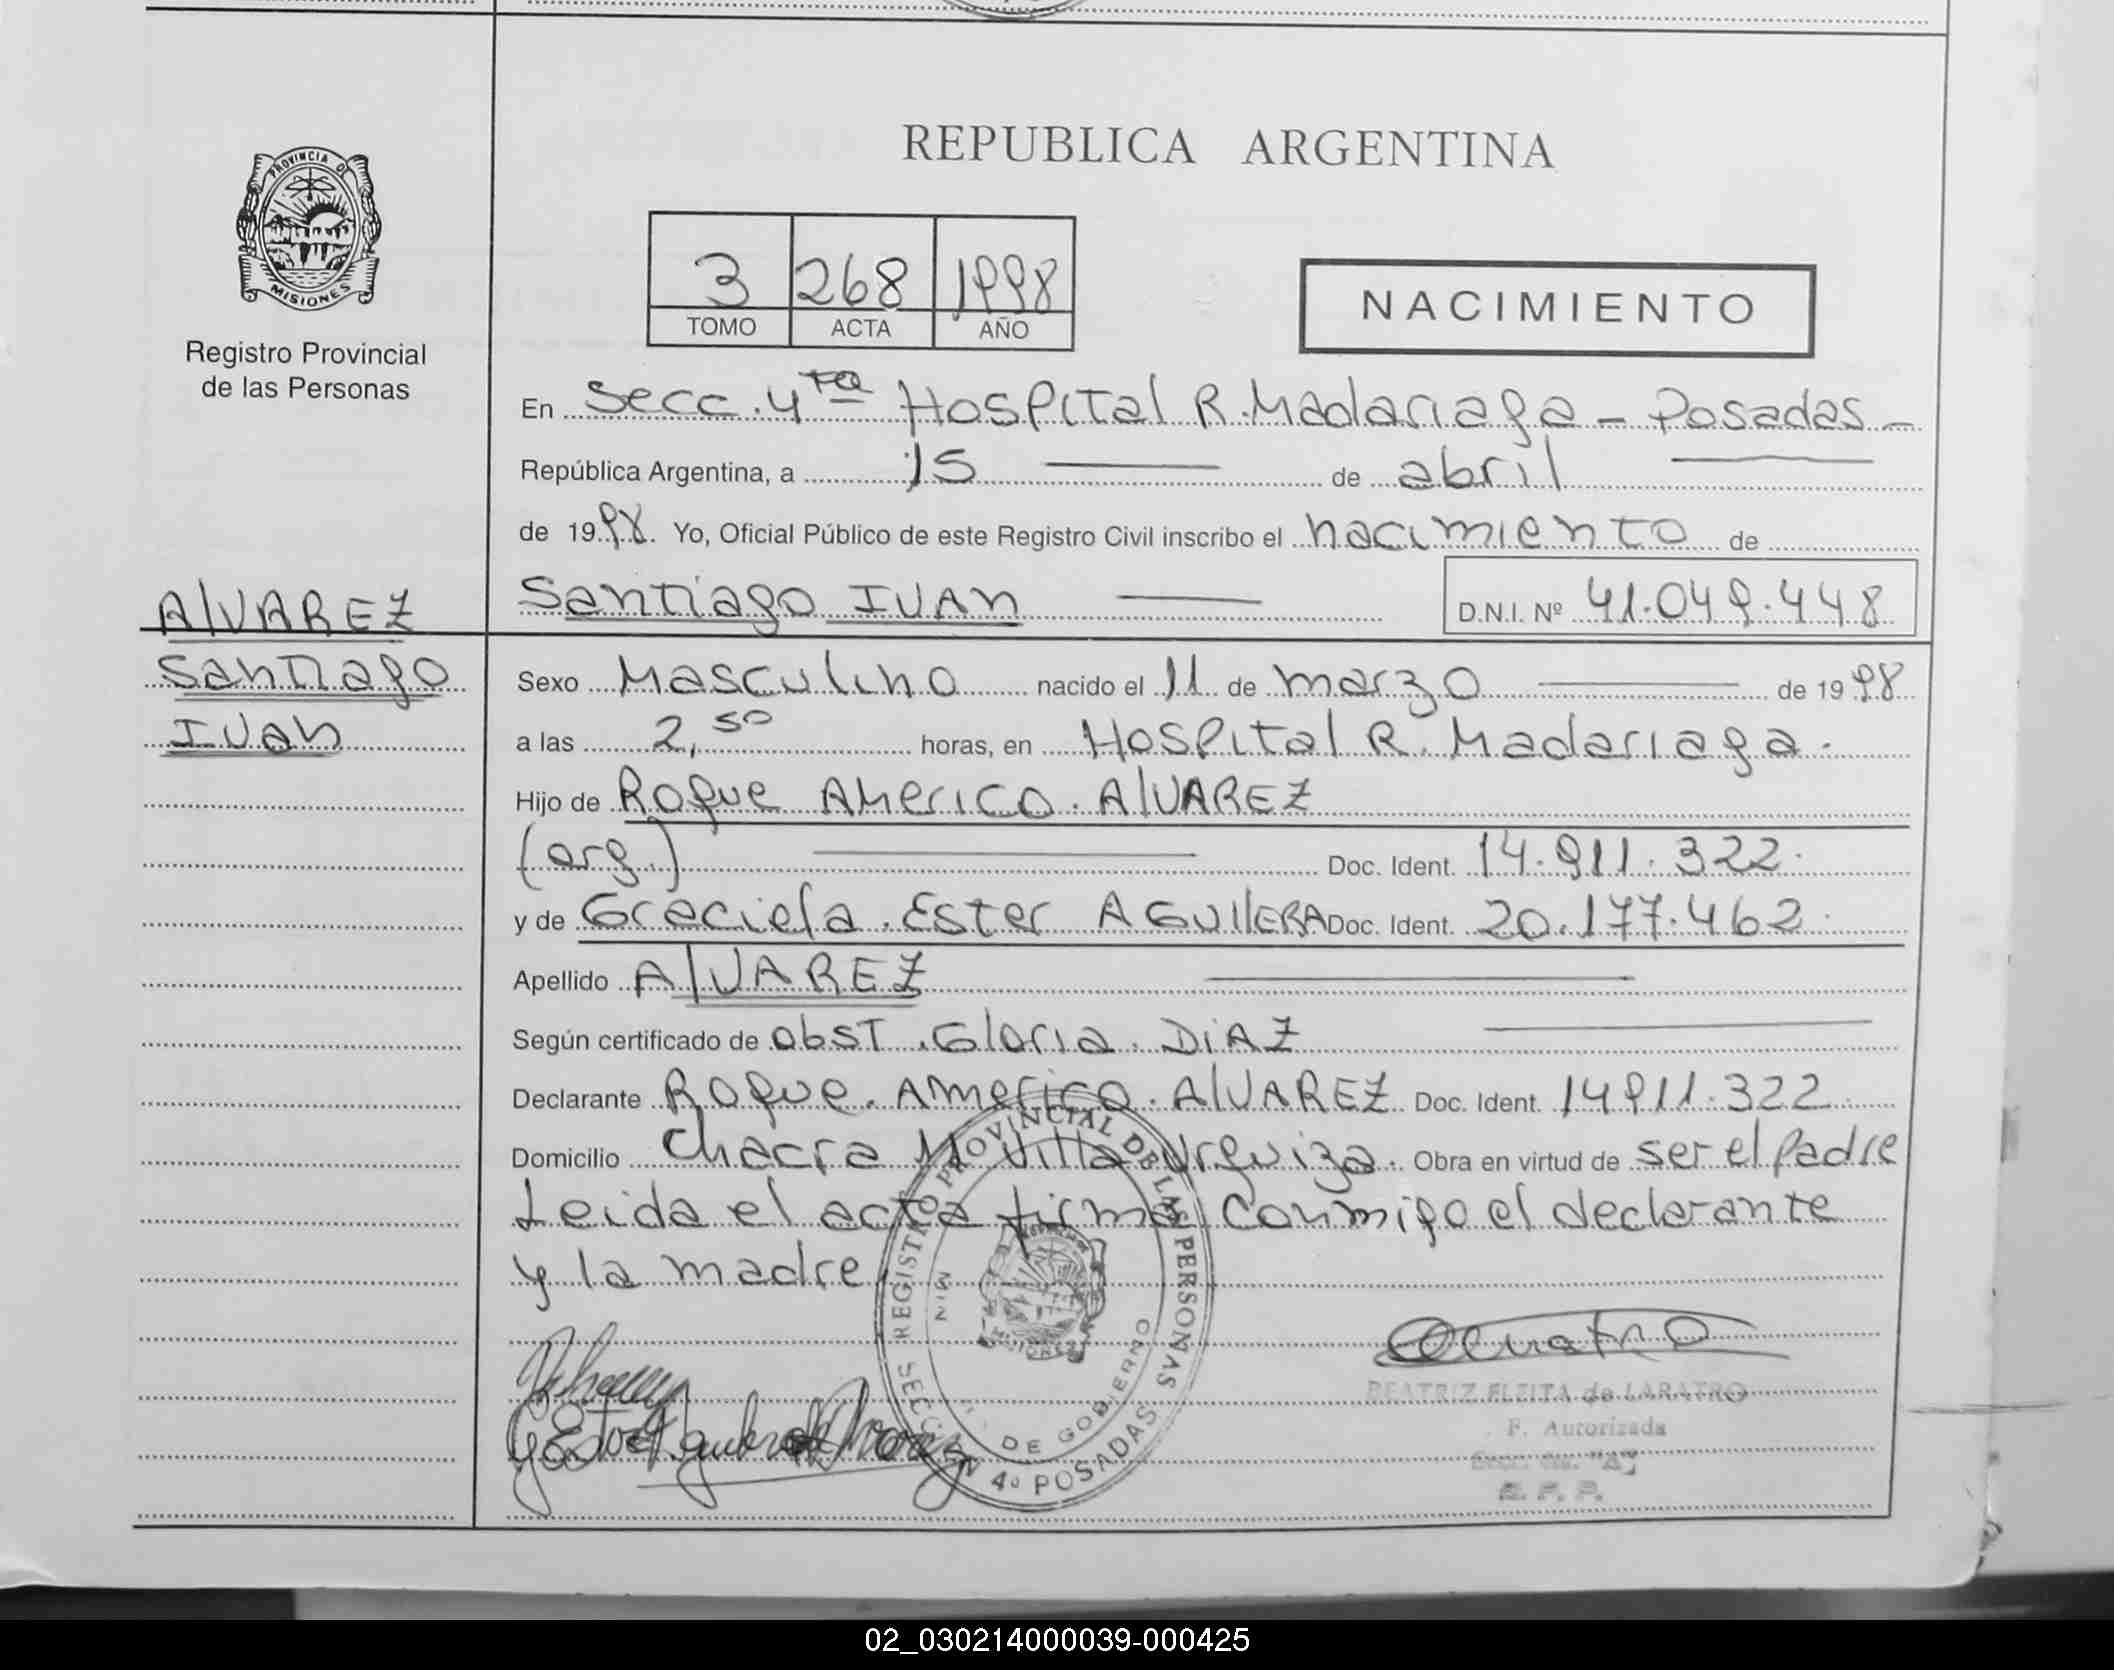 PROVINCIA DE
MISIONES
Registro Provincial
de las Personas
REPUBLICA ARGENTINA
3 268 1998
TOMO ACTA AÑO
NACIMIENTO
En Secc. 4ta Hospital R. Madariaga - Posadas -
República Argentina, a 15 de abril
de 1998. Yo, Oficial Público de este Registro Civil inscribo el nacimiento de
Santiago IVAN D.N.I. Nº 41.049.448
AlVAREZ
Santiago
Ivan
Sexo Masculino nacido el 11 de marzo de 1998
a las 2,50 horas, en Hospital R. Madariaga.
Hijo de Roque Americo. AlVAREZ
(arg.) Doc. Ident. 14.911.322.
y de Graciela. Ester AGUIlERA Doc. Ident. 20.177.462.
Apellido AlVAREZ
Según certificado de obst. Gloria. DiAZ
Declarante Roque. Americo. AlVAREZ Doc. Ident. 14911.322.
Domicilio Chacra Villa Urquiza. Obra en virtud de ser el Padre
Leida el acta firma conmigo el declarante
y la madre
REGISTRO PROVINCIAL DE LAS PERSONAS
SECCION 4º POSADAS
MIN. DE GOBIERNO
MISIONES
BEATRIZ FLEITA de LARATRO
F. Autorizada
R. P. P.
02_030214000039-000425